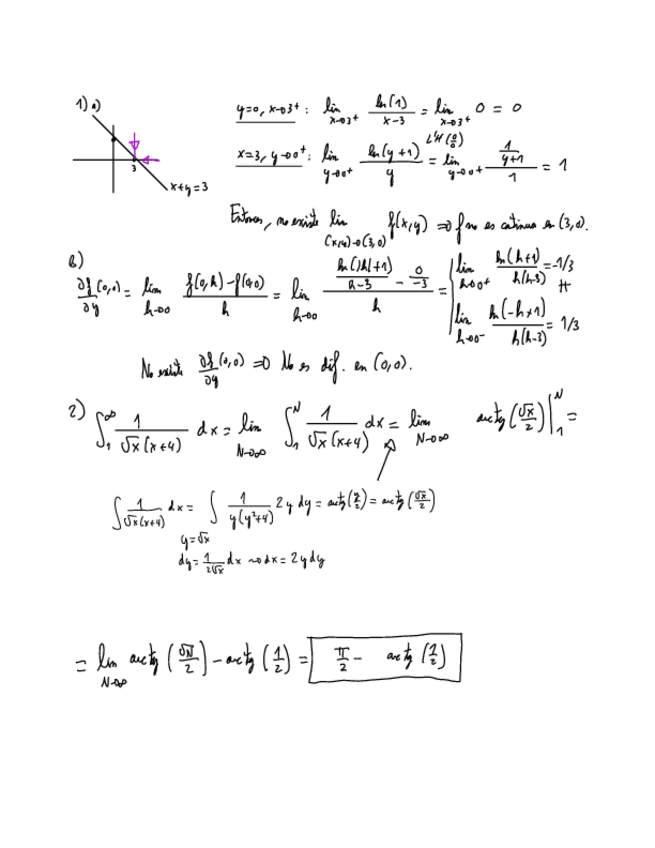 1) a)
3
x+y=3
y=0, x→3⁺ : lim_{x→3⁺} ln(1)/(x-3) = lim_{x→3⁺} 0 = 0
x=3, y→0⁺ : lim_{y→0⁺} ln(y+1)/y =^{L'H (0/0)} lim_{y→0⁺} (1/(y+1))/1 = 1
Entonces, no existe lim_{(x,y)→(3,0)} f(x,y) ⇒ f no es continua en (3,0).
b)
∂f/∂y (0,0) = lim_{h→0} (f(0,h)-f(0,0))/h = lim_{h→0} (ln(|h|+1)/(h-3) - 0/-3)/h = { lim_{h→0⁺} ln(h+1)/(h(h-3)) = -1/3
≠
lim_{h→0⁻} ln(-h+1)/(h(h-3)) = 1/3
No existe ∂f/∂y (0,0) ⇒ No es dif. en (0,0).
2) ∫_1^∞ 1/(√x (x+4)) dx = lim_{N→∞} ∫_1^N 1/(√x (x+4)) dx = lim_{N→∞} arctg(√x/2) |_1^N =
∫ 1/(√x(x+4)) dx = ∫ 1/(y(y²+4)) 2y dy = arctg(y/2) = arctg(√x/2)
y=√x
dy = 1/(2√x) dx → dx = 2y dy
= lim_{N→∞} arctg(√N/2) - arctg(1/2) = π/2 - arctg(1/2)